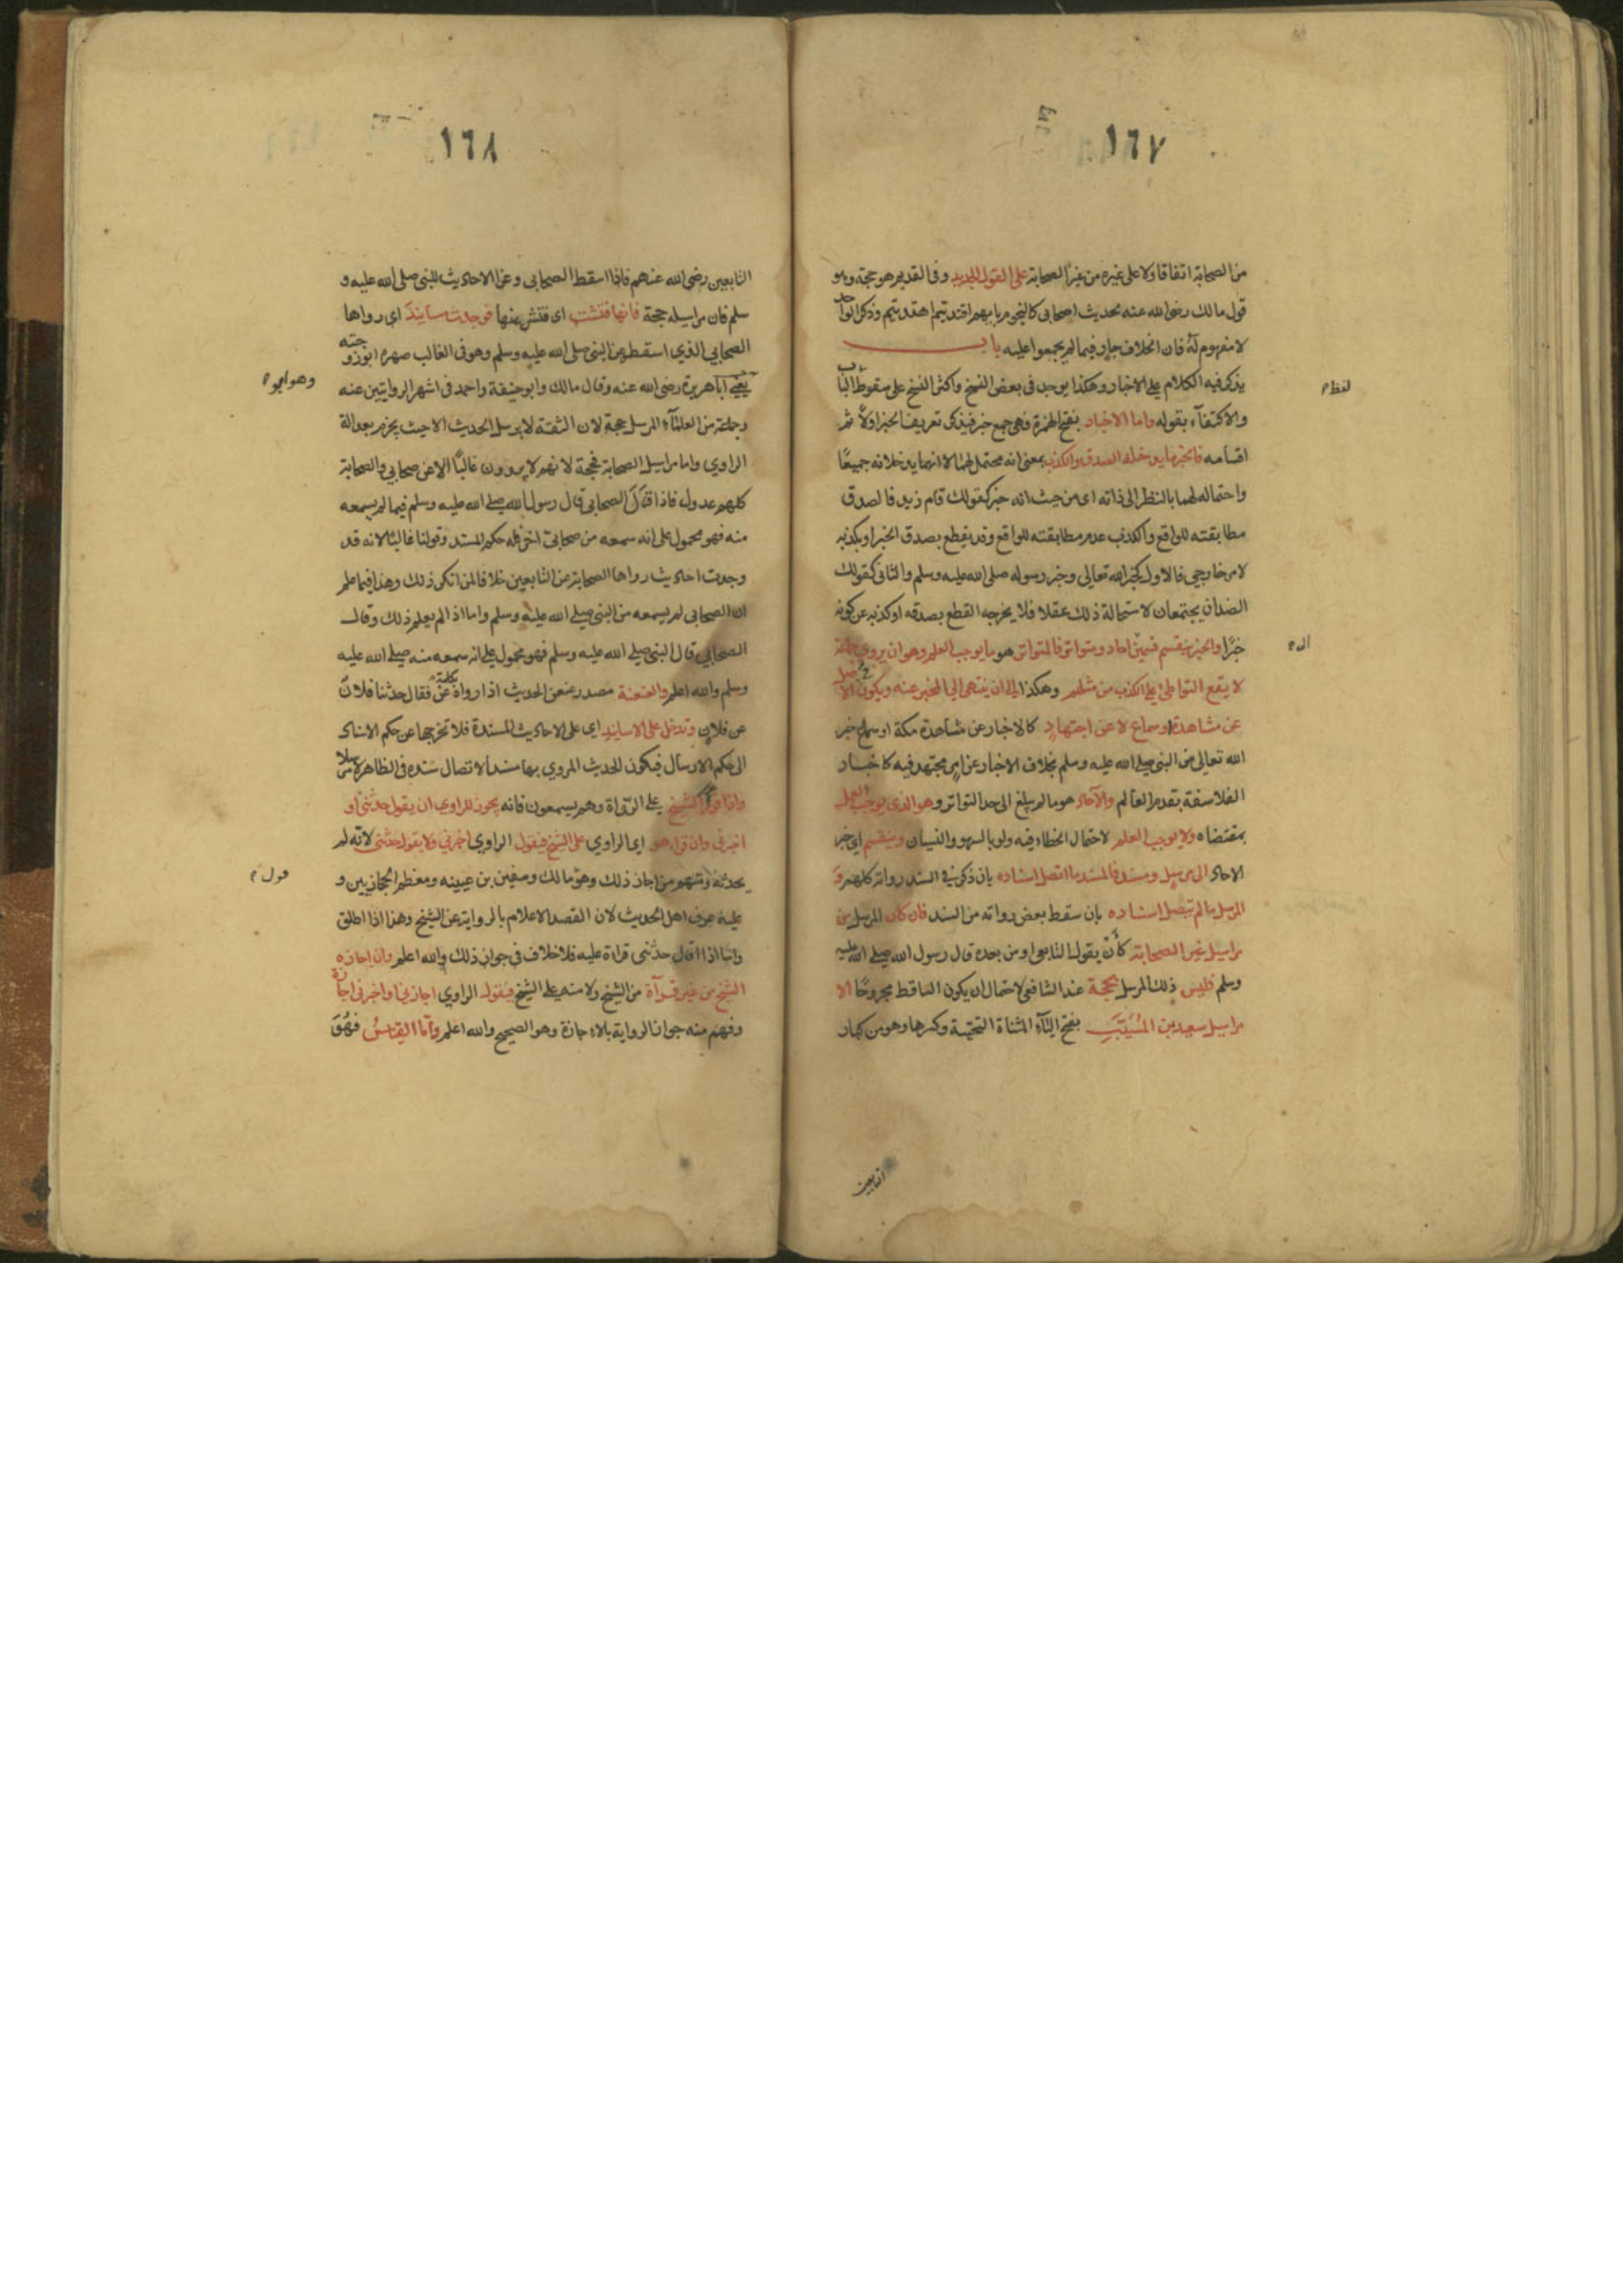 ١٦٧
من الصحابة اتفاقا ولا على غيره من غير الصحابة على القول الجديد وفي القديم هو حجة وهو
قول مالك رضي الله عنه لحديث اصحابي كالنجوم بايهم اقتديتم اهتديتم وذكر الواحد
لا مفهوم له فان الخلاف جار فيما لم يجمعوا عليه باب
يذكر فيه الكلام على الاخبار وهكذا يوجد في بعض النسخ واكثر النسخ على سقوط لفظ الباب
والاكتفآء بقوله واما الاخبار بفتح الهمزة فهي جمع خبر فيذكر تعريف الخبر اولاً ثم
اقسامه فالخبر ما يدخله الصدق والكذب بمعنى انه محتمل لهما لا انهما يدخلانه جميعًا
واحتماله لهما بالنظر الى ذاته اي من حيث انه خبر كقولك قام زيد فالصدق
مطابقته للواقع والكذب عدم مطابقته للواقع وقد يقطع بصدق الخبر او بكذبه
لامر خارجي فالاول كخبر الله تعالى وخبر رسوله صلى الله عليه وسلم والثاني كقولك
الضدان يجتمعان لاستحالة ذلك عقلا فلا يخرجه القطع بصدقه او كذبه عن كونه
خبرًا والخبر ينقسم قسمين الى احاد ومتواتر فالمتواتر هو ما يوجب العلم وهو ان يروي جماعة
لا يقع التواطئ على الكذب من مثلهم وهكذا الى ان ينتهي الى المخبر عنه ويكون في الاصل
عن مشاهدة او سماع لا عن اجتهاد كالاخبار عن مشاهدة مكة او سماع خبر
الله تعالى من النبي صلى الله عليه وسلم بخلاف الاخبار عن امر مجتهد فيه كاخبار
الفلاسفة بقدم العالم والآحاد هو ما لم يبلغ الى حد التواتر وهو الذي يوجب العمل
بمقتضاه ولا يوجب العلم لاحتمال الخطاء فيه ولو بالسهو والنسيان وينقسم اي خبر
الاحاد الى مرسل ومسند فالمسند ما اتصل اسناده بان ذكر في السند رواته كلهم و
المرسل ما لم يتصل اسناده بان سقط بعض رواته من السند فان كان المرسل من
مراسيل غير الصحابة كأن يقول التابعي او من بعده قال رسول الله صلى الله عليه
وسلم فليس ذلك المرسل بحجة عند الشافعي لاحتمال ان يكون الساقط مجروحًا الا
مراسيل سعيد بن المُسَيَّبِ بفتح اليآء المثناة التحتية وكسرها وهو من كبار
التابعين
١٦٨
التابعين رضي الله عنهم فاذا اسقط الصحابي وعزا الاحاديث للنبي صلى الله عليه و
سلم فان مراسيله حجة فانها فتشت اي فتش عنها فوجدت مسانيدَ اي رواها
الصحابي الذي اسقطه عن النبي صلى الله عليه وسلم وهو في الغالب صهره ابو زوجته وهو ابو
يعني اباهريرة رضي الله عنه وقال مالك وابو حنيفة واحمد في اشهر الروايتين عنه
وجماعة من العلمآء المرسل حجة لان الثقة لا يرسل الحديث الا حيث يجزم بعدالة
الراوي واما مراسيل الصحابة فحجة لانهم لا يروون غالبًا الا عن صحابي والصحابة
كلهم عدول فاذا قال الصحابي قال رسول الله صلى الله عليه وسلم فيما لم يسمعه
منه فهو محمول على انه سمعه من صحابيّ اخر فله حكم المسند وقولنا غالبًا لانه قد
وجدت احاديث رواها الصحابة عن التابعين خلافا لمن انكر ذلك وهذا فيما علم
ان الصحابي لم يسمعه من النبي صلى الله عليه وسلم واما اذا لم يعلم ذلك وقال
الصحابي قال النبي صلى الله عليه وسلم فهو محمول على انه سمعه منه صلى الله عليه
وسلم والله اعلم والعنعنة مصدر عنعن الحديث اذا رواه بكلمة عن فقال حدثنا فلان
عن فلان وتدخل على الاسانيد اي على الاحاديث المسندة فلا تخرجها عن حكم الاسناد
الى حكم الارسال فيكون الحديث المروي بها مسنداً لاتصال سنده في الظاهر لا مرسلا
واذا قرأ الشيخ على الرواة وهم يسمعون فانه يجوز للراوي ان يقول حدثني او
اخبرني وان قراء هو اي الراوي على الشيخ فيقول الراوي اخبرني ولا يقول حدثني لانه لم
يحدثه ومنهم من اجاز ذلك وهو قول مالك وسفين بن عيينه ومعظم الحجازيين و
عليه عرف اهل الحديث لان القصد الاعلام بالرواية عن الشيخ وهذا اذا اطلق
واما اذا قال حدثني قراءة عليه فلا خلاف في جواز ذلك والله اعلم وان اجازه
الشيخ من غير قرآءة من الشيخ ولا منه على الشيخ فيقول الراوي اجازني او اخبرني اجازة
وفهم منه جواز الرواية بالاجازة وهو الصحيح والله اعلم وأمّا القياسُ فهُوَ